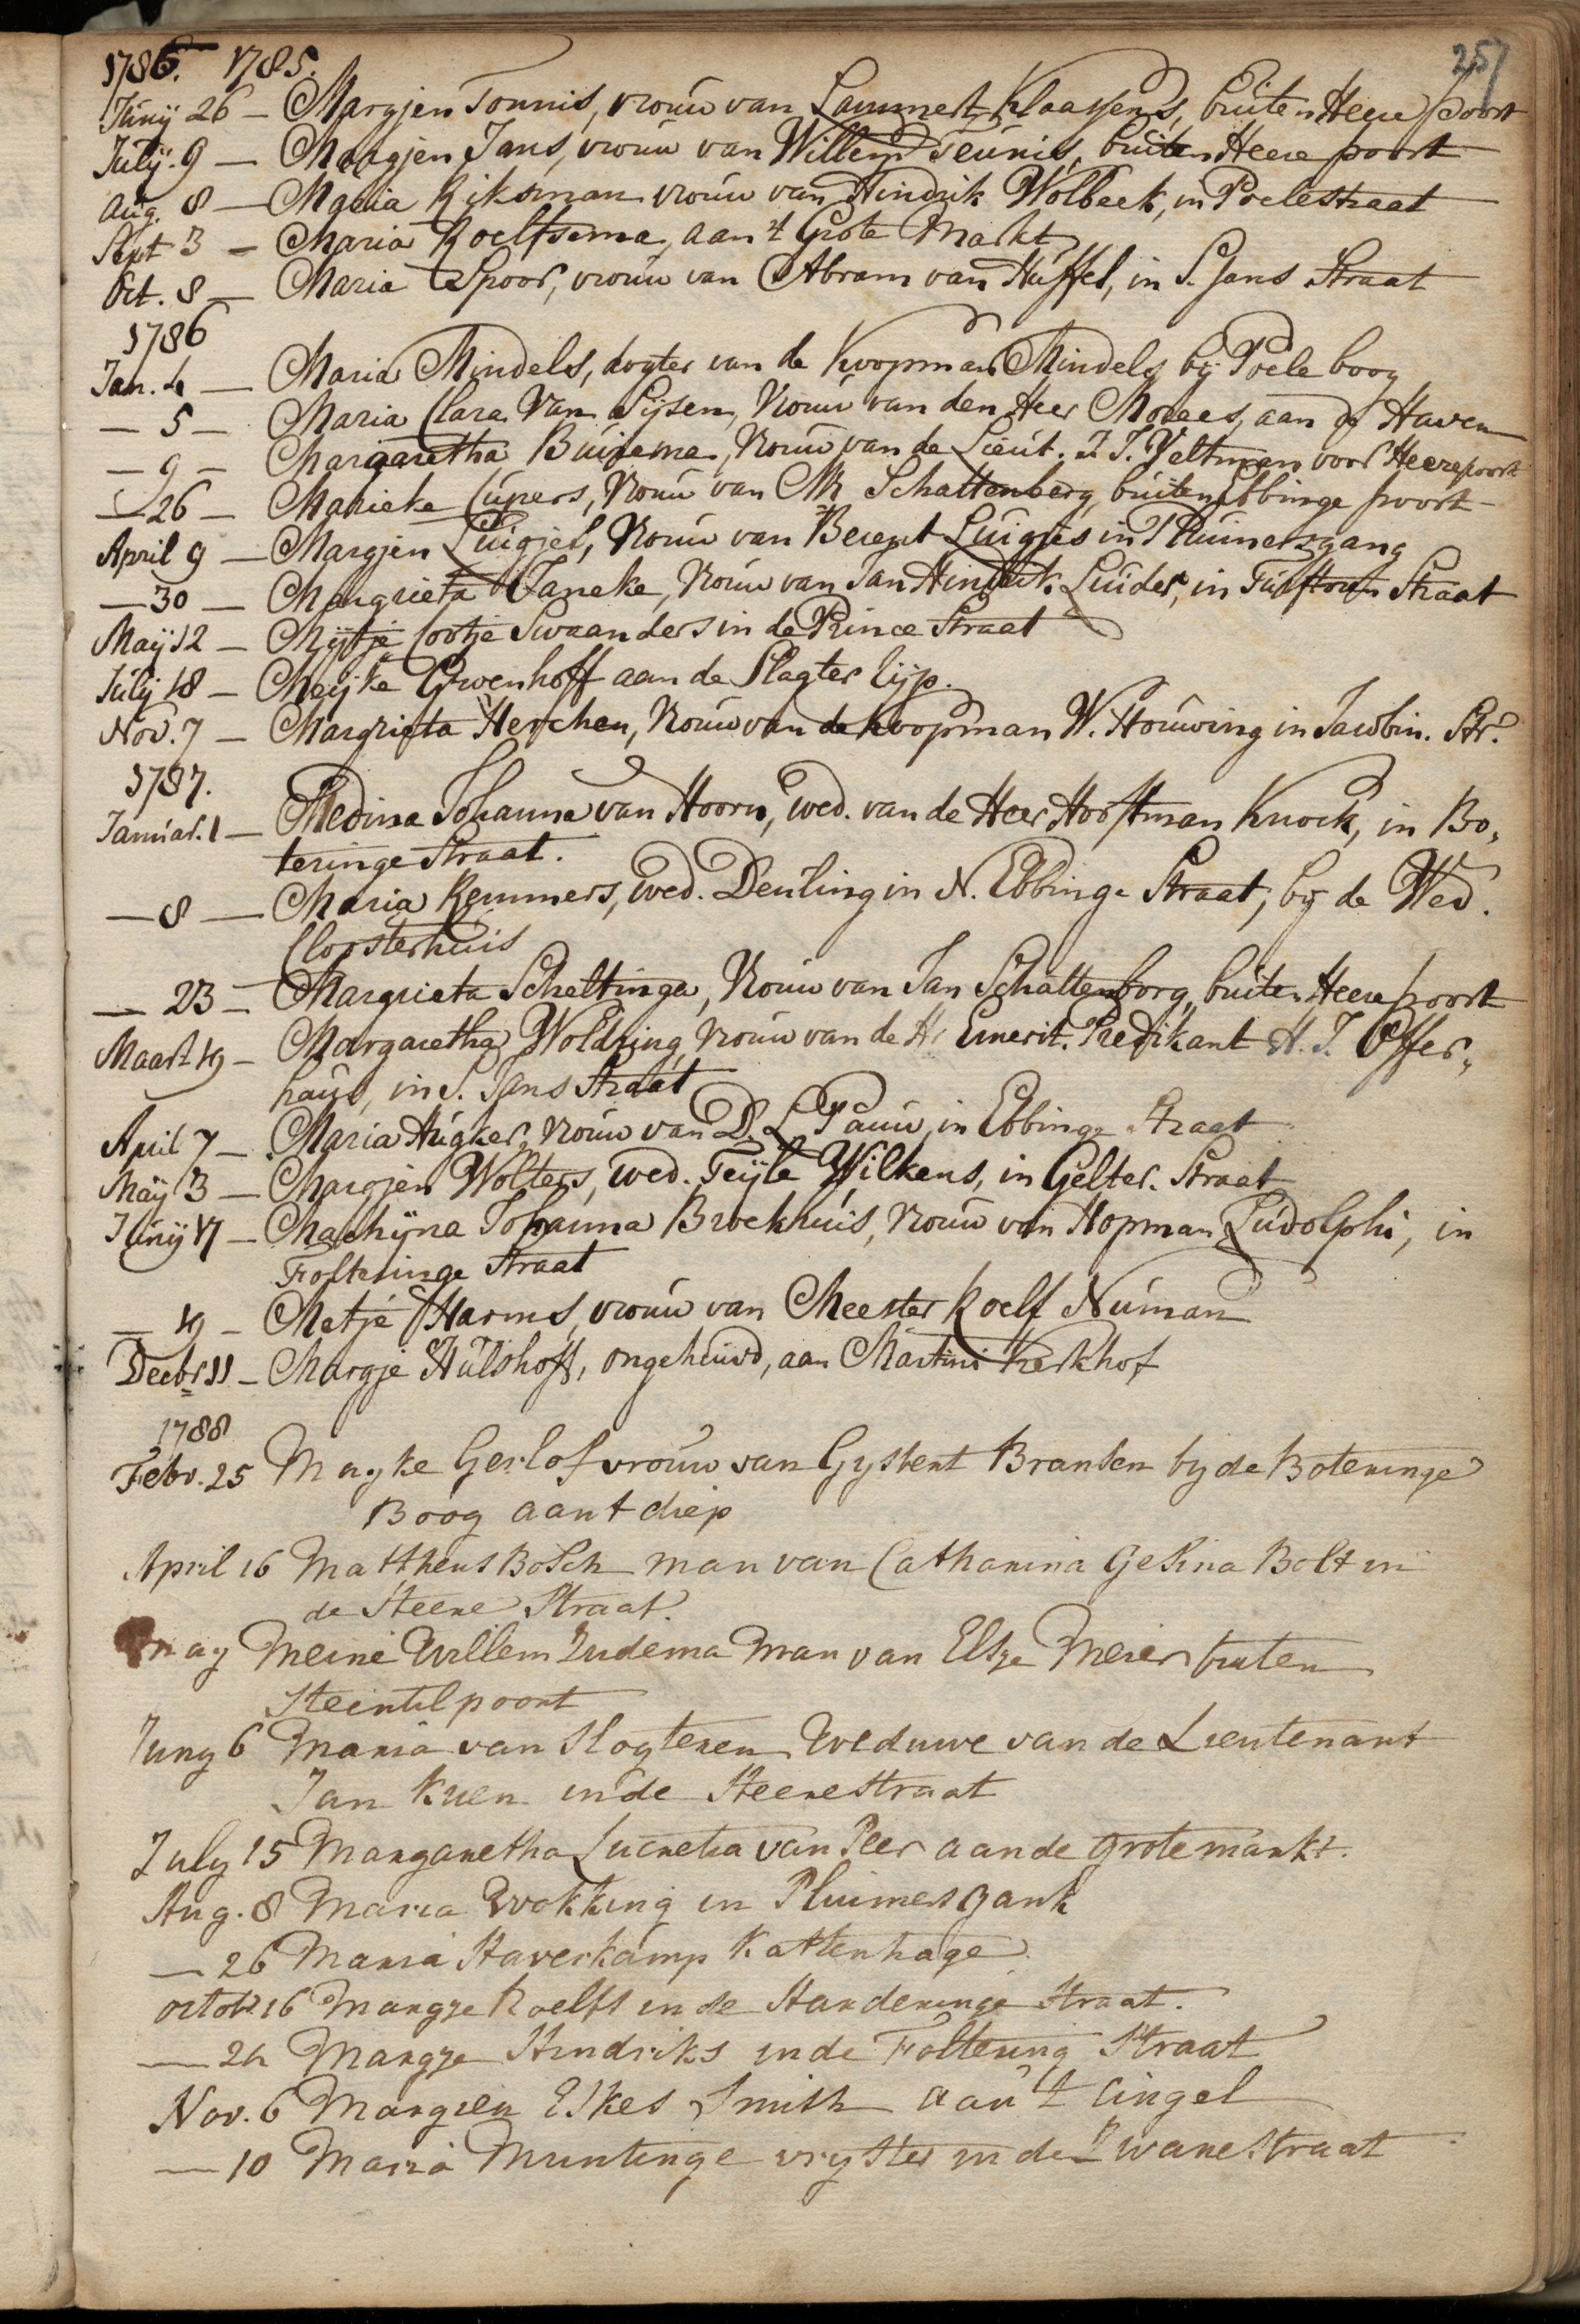 257
1786. 1785.
Junÿ 26 — Margjen Tonnis, vrouw van Lammert Klaassens, buiten Heere poort
Julÿ. 9 — Margjen Jans, vrouw van Willem Teunis, buiten Heere poort
Aug. 8 — Maria Riksman vrouw van Hindrik Wolbeek, in Poelestraat
Sept 3 — Maria Roelfsema, aan 't Grote Markt
Oct. 8 — Maria Spoor, vrouw van Abram van Huffel, in S. Jans Straat
1786
Jan. 4 — Maria Mindels, dogter van de Koopman Mindels bÿ Poele boog
— 5 — Maria Clara Van Sÿsen, Vrouw van den Heer Morees, aan de Haven
— 9 — Margaretha Buirema, Vrouw van de Lieut. J. J. Veltman voor Heerepoort
— 26 — Marieke Cupers, Vrouw van M. Schattenberg, buiten Ebbinge poort
April 9 — Margjen Luigjes, Vrouw van Berent Luigjes in Pluimersgang
— 30 — Mangrieta Janeke, Vrouw van Jan Hindrik Luider, in Straat
Maÿ 12 — Mÿtje Cootje Swaanders in de Prince Straat
Julÿ 18 — Meÿke Gwenhoff aan de Slagter rÿp.
Nov. 7 — Margrieta Herchen, Vrouw van de koopman W. Houwing in Jacobin. Str.
1787.
Januar. 1 — Medina Johanna van Hoorn, wed. van de Heer Hooftman Knock, in Bo„
teringe Straat.
— 8 — Maria Remmers, wed. Deuling in N. Ebbinge Straat, bÿ de Wed.
Cloosterhuis
— 23 — Margrieta Scheltinga, Vrouw van Jan Schattenborg, buiten Heere poort
Maart 19 — Margaretha Woldring, Vrouw van de Hr Emerit. Predikant H. J. Offer„
haus, in S. Jans Straat
April 7 — Maria Hugker, Vrouw van D. L. Pauw, in Ebbinge Straat
Maÿ 3 — Margjen Wolters, wed. Feÿle Wilkens, in Gelker. Straat
Junÿ 17 — Machÿna Johanna Broekhuis, Vrouw van Hopman Ludolphi, in
Folkeringe Straat
— 19 — Metje Harms, vrouw van Meester Roelf Numan
Decbr 11 — Margje Hulshoff, ongehuwd, aan Martini Kerkhof
1788
Febr. 25 Mayke Gerlof vrouw van Gysbert Bransen by de Boteringe
Boog aan t diep
April 16 Mattheus Bosch man van Catharina Gesina Bolt in
de Heere Straat.
may Meine Willem Zudema man van Elsje Meier buten
Steintil poort
Juny 6 Maria van Slogteren Weduwe van de Lieutenant
Jan Kuen in de Heerestraat
July 15 Margaretha Lucretia van Peer aan de grote markt.
Aug. 8 Maria Wokking in Pluimersgank
— 26 Maria Haverkamp Kattenhage
octob 16 Margje Roelfs in de Harderinge Straat.
— 24 Margje Hindriks in de Foltering Straat
Nov. 6 Margien Elkes Smith aan 't Cingel
— 10 Maria Muntinge vryster in de Zwanestraat